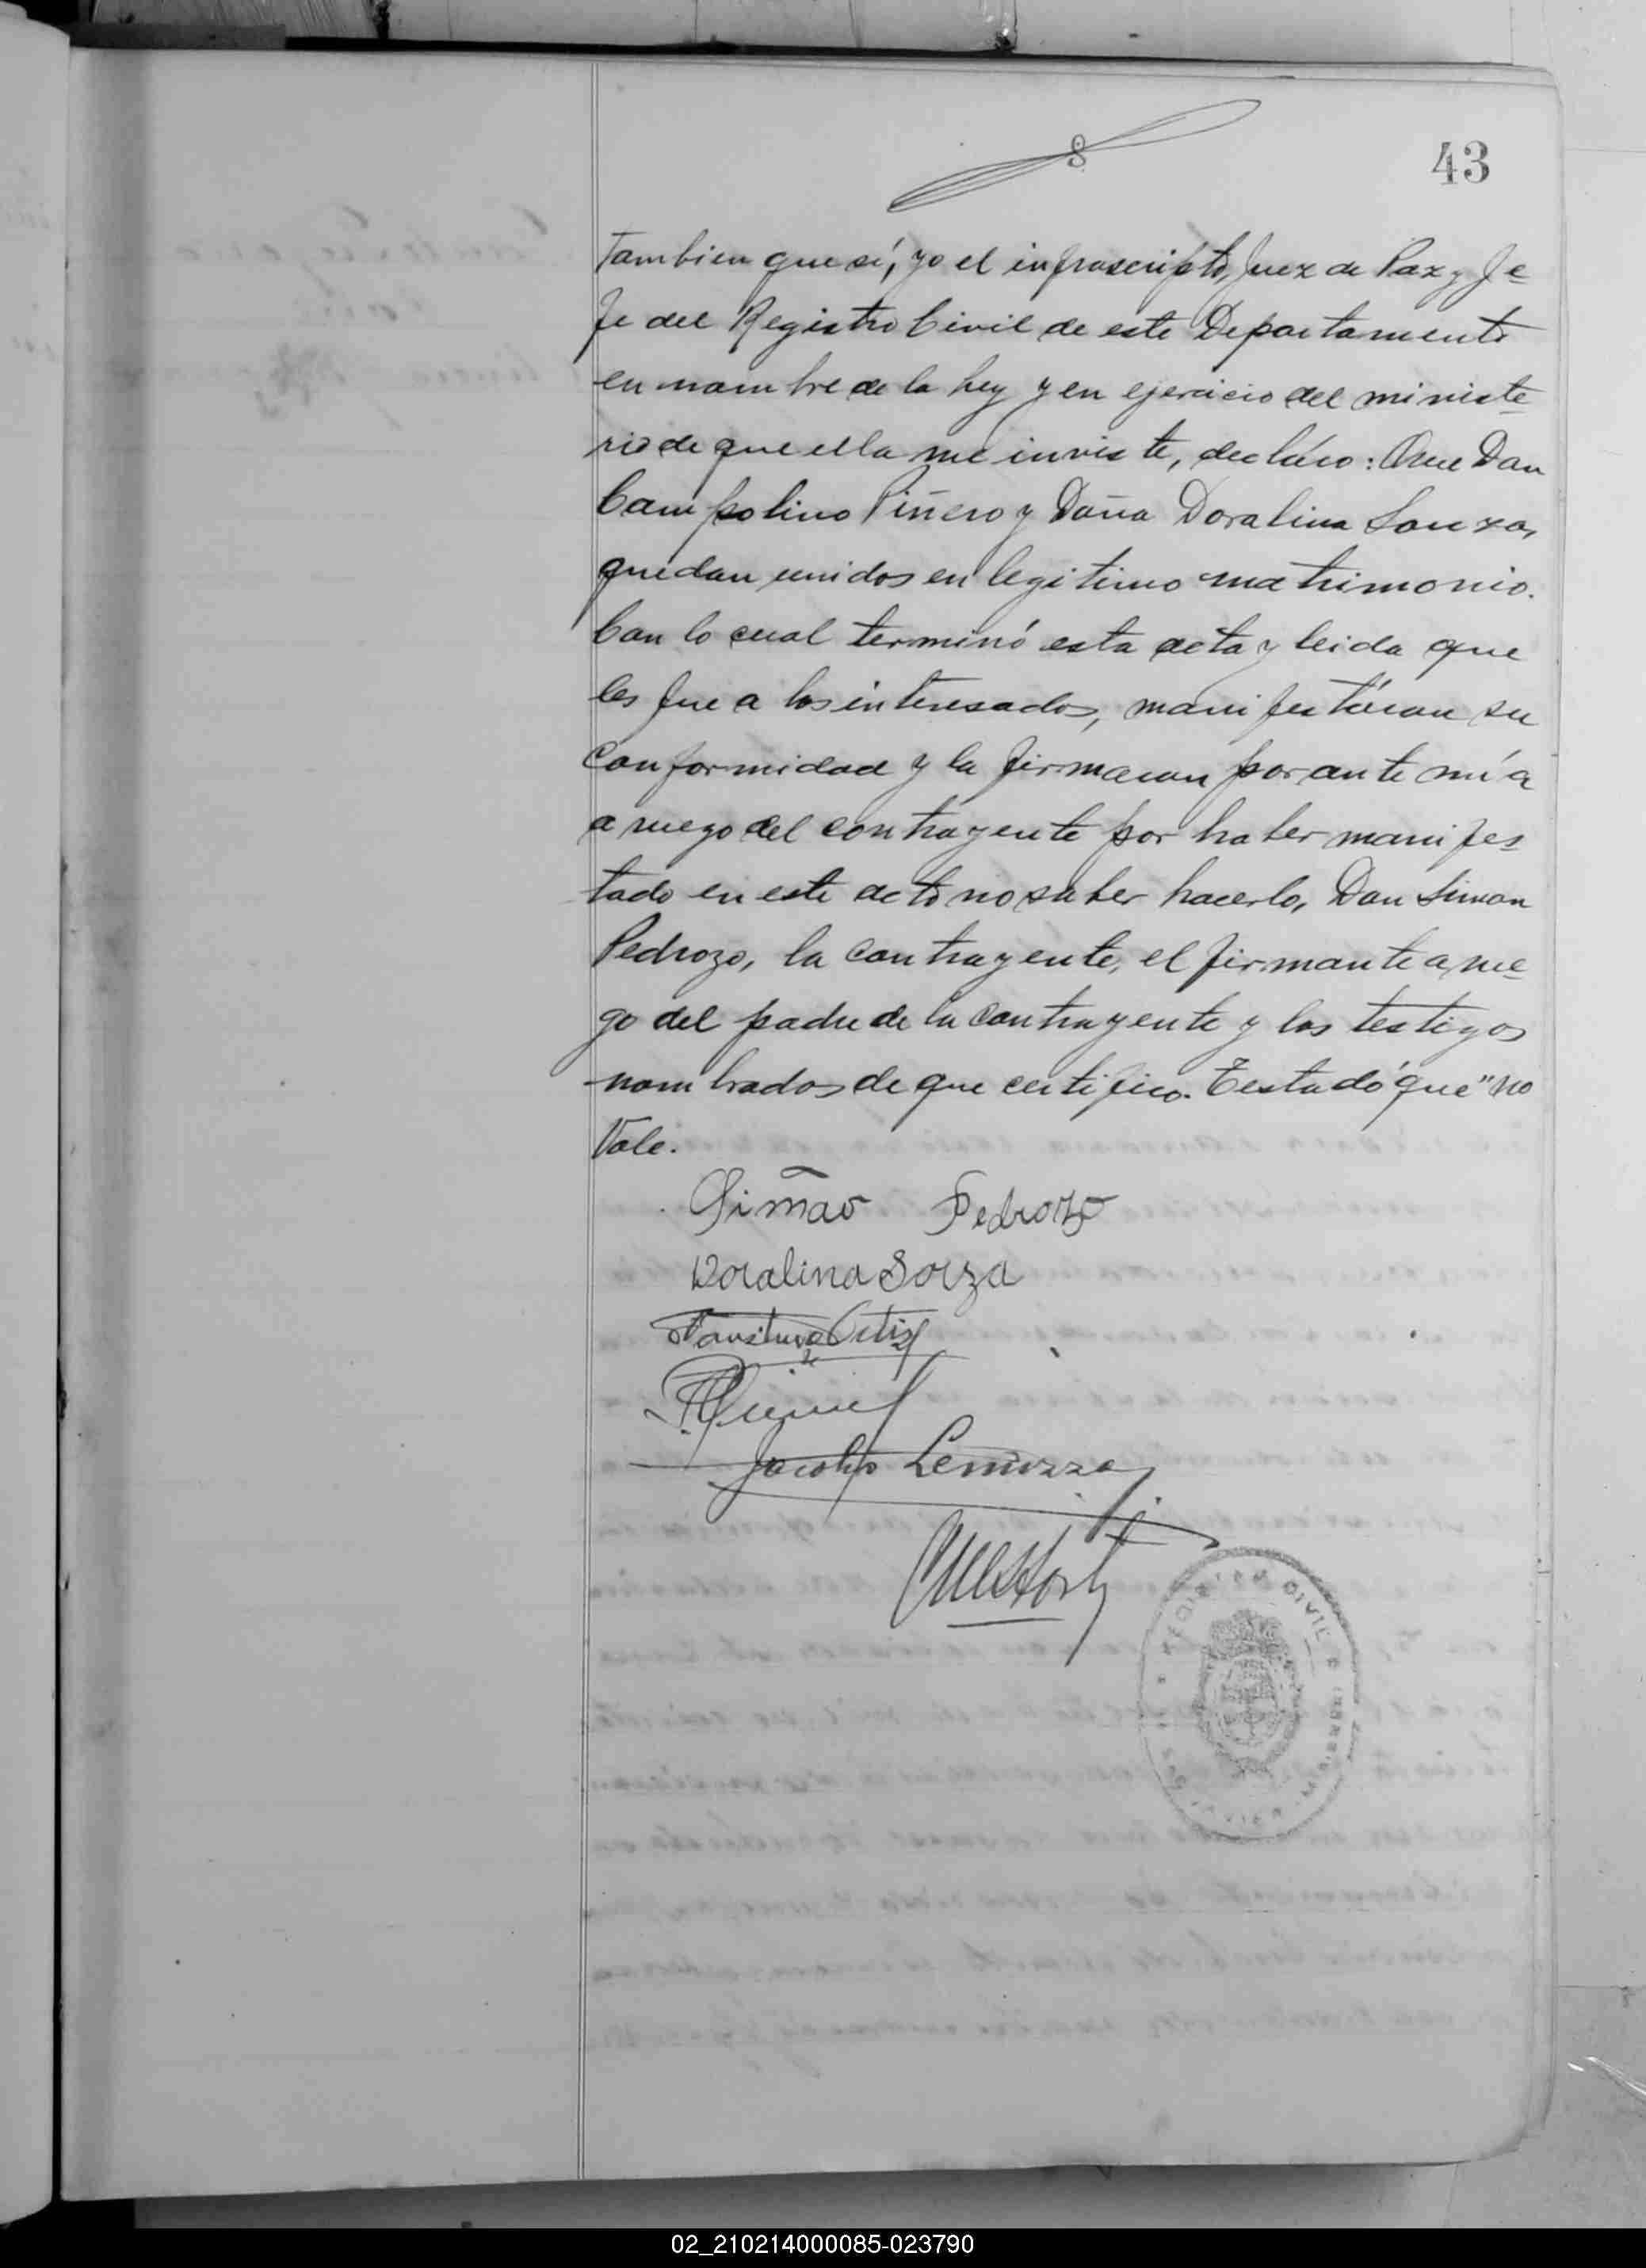 43
8
tambien que sí, yo el infrascripto, Juez de Paz y Je-
fe del Registro Civil de este Departamento
en nombre de la Ley y en ejercicio del ministe-
rio de que ella me inviste, decláro: Que Don
Campolino Piñero y Doña Doralina Souza,
quedan unidos en legitimo matrimonio.
Con lo cual terminó esta acta y leida que
les fue a los interesados, manifestáron su
conformidad y la firmaron por ante mí a
a ruego del contrayente por haber manifes-
tado en este acto no saber hacerlo, Don Simon
Pedrozo, la contrayente, el firmante a rue-
go del padre de la contrayente y los testigos
nombrados de que certifico. Testado "que" no
Vale.
Simão Pedrozo
Doralina Sorza
Faustino Ortiz
Jacobo Lemozza
REGISTRO CIVIL
02_210214000085-023790